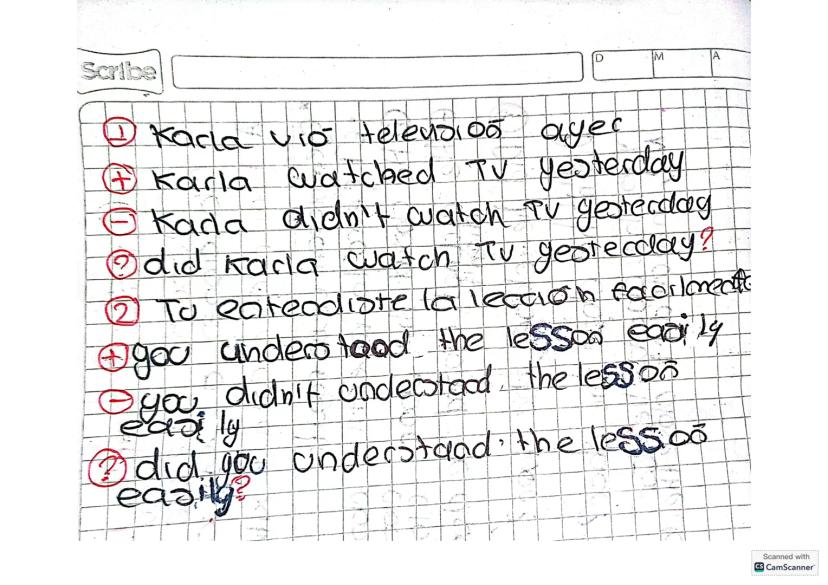 Scribe
D M A
① Karla vió televisión ayer
⊕ Karla watched TV yesterday
⊖ Karla didn't watch TV yesterday
? did Karla watch TV yesterday?
② Tu entendiste la lección facilmente
⊕ you understood the lesson easily
⊖ you didn't understand the lesson
easily
? did you understand the lesson
easily?
Scanned with
CS CamScanner